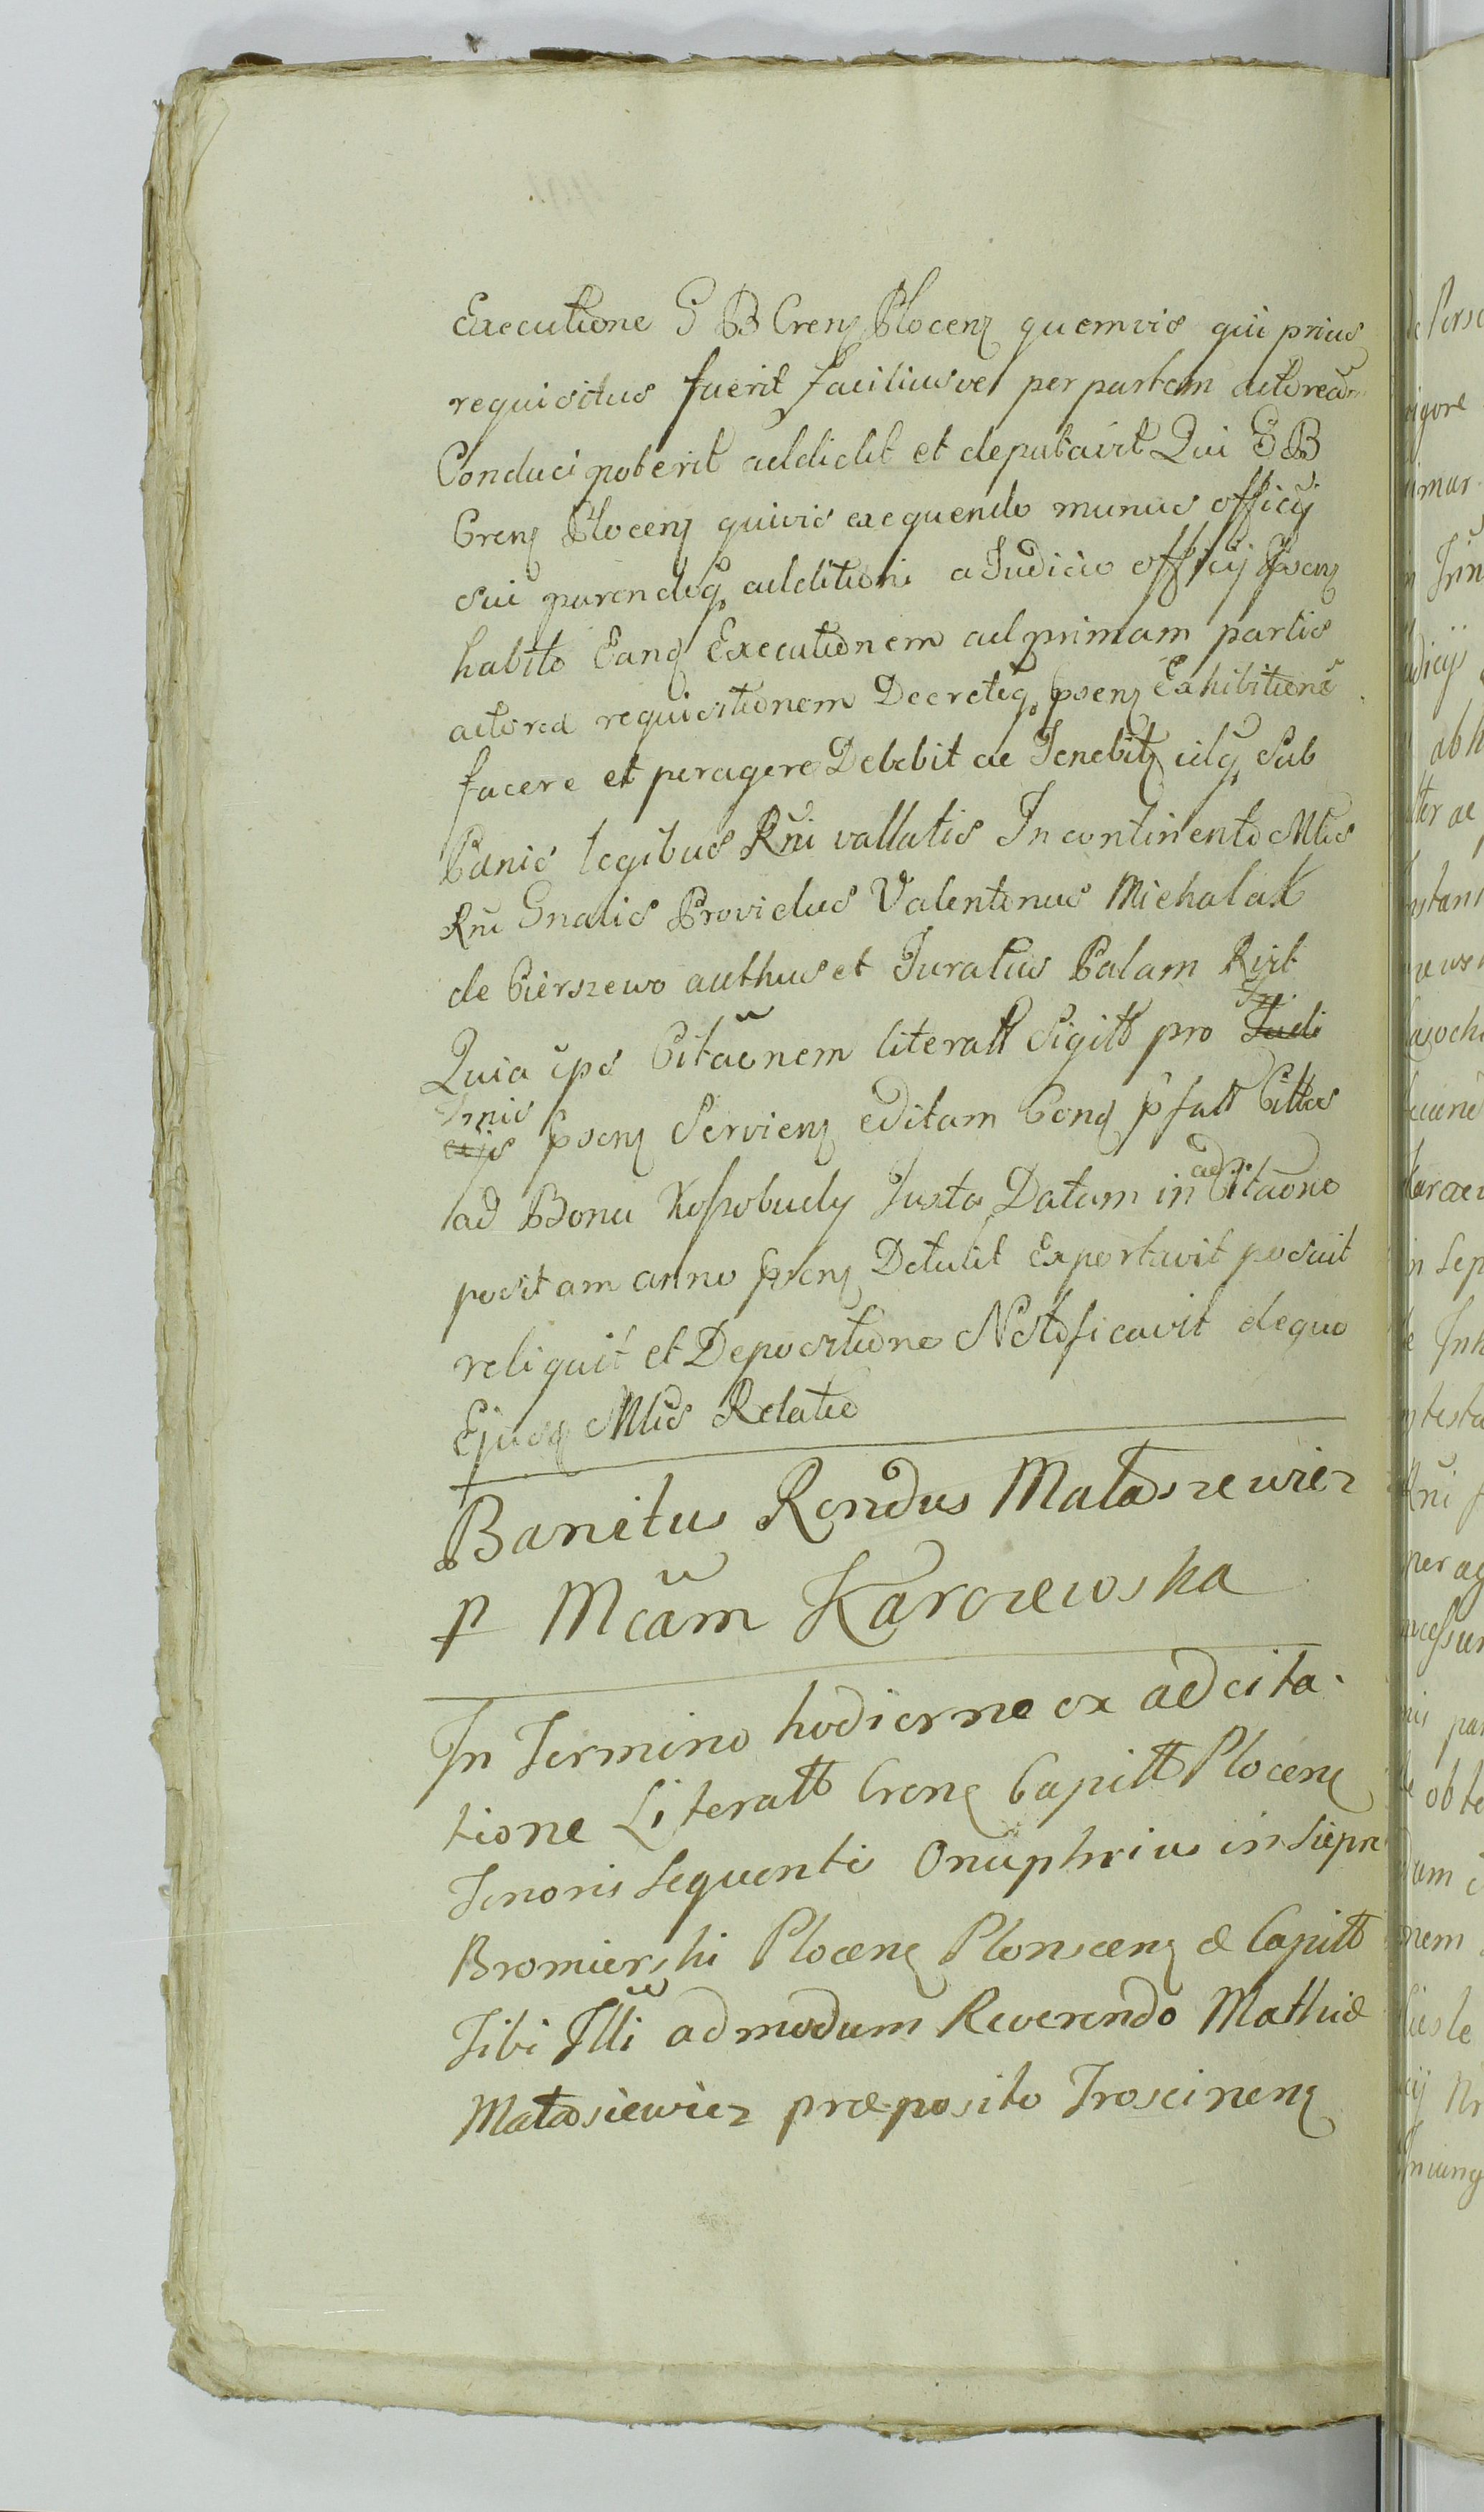 Executione G B Cren Plocen quemvis qui prius
requisitus fuerit faciliusve per partem actoream
Conduci poterit addidit et deputavit Qui G B
Cren Plocen quivis exequendo munus officij
sui parendoq additioni a Judicio officij psen
habito Eand Executionem ad primam partis
actorea requisitionem Decretiq psen Exhibitione
facere et peragere Debebit ac Tenebit idq Sub
Panis legibus Rni vallatis In continenti Mlis
Rni Gnalis Providus Valentinus Michalak
de Cierszewo authus et Juratus Palam Rt
Quia ips Citaõnem literatt Sigitt pro Judi
Trnis
ejs psen Servien editam Cond pfatt Cittos
ad Bona Kossobudy Juxta Datam in ad Citaõne
positam anno psen Detulit Exportavit posuit
reliquit et Depositione Notificavit de quo
Ejusd Mlis Relatio
Banitus Rendus Mataszewicz
p Mcãm Karczewska
In Termino hodierno ex adcita
tione Literatt Cren Capitt Plocen
Tenoris Sequentis Onuphrius in Siepn
Bromierski Plocen Plonscen & Capitt
Tibi Illi admodum Reverendo Mathiæ
Matasiewicz præposito Troscinen
abh
obte